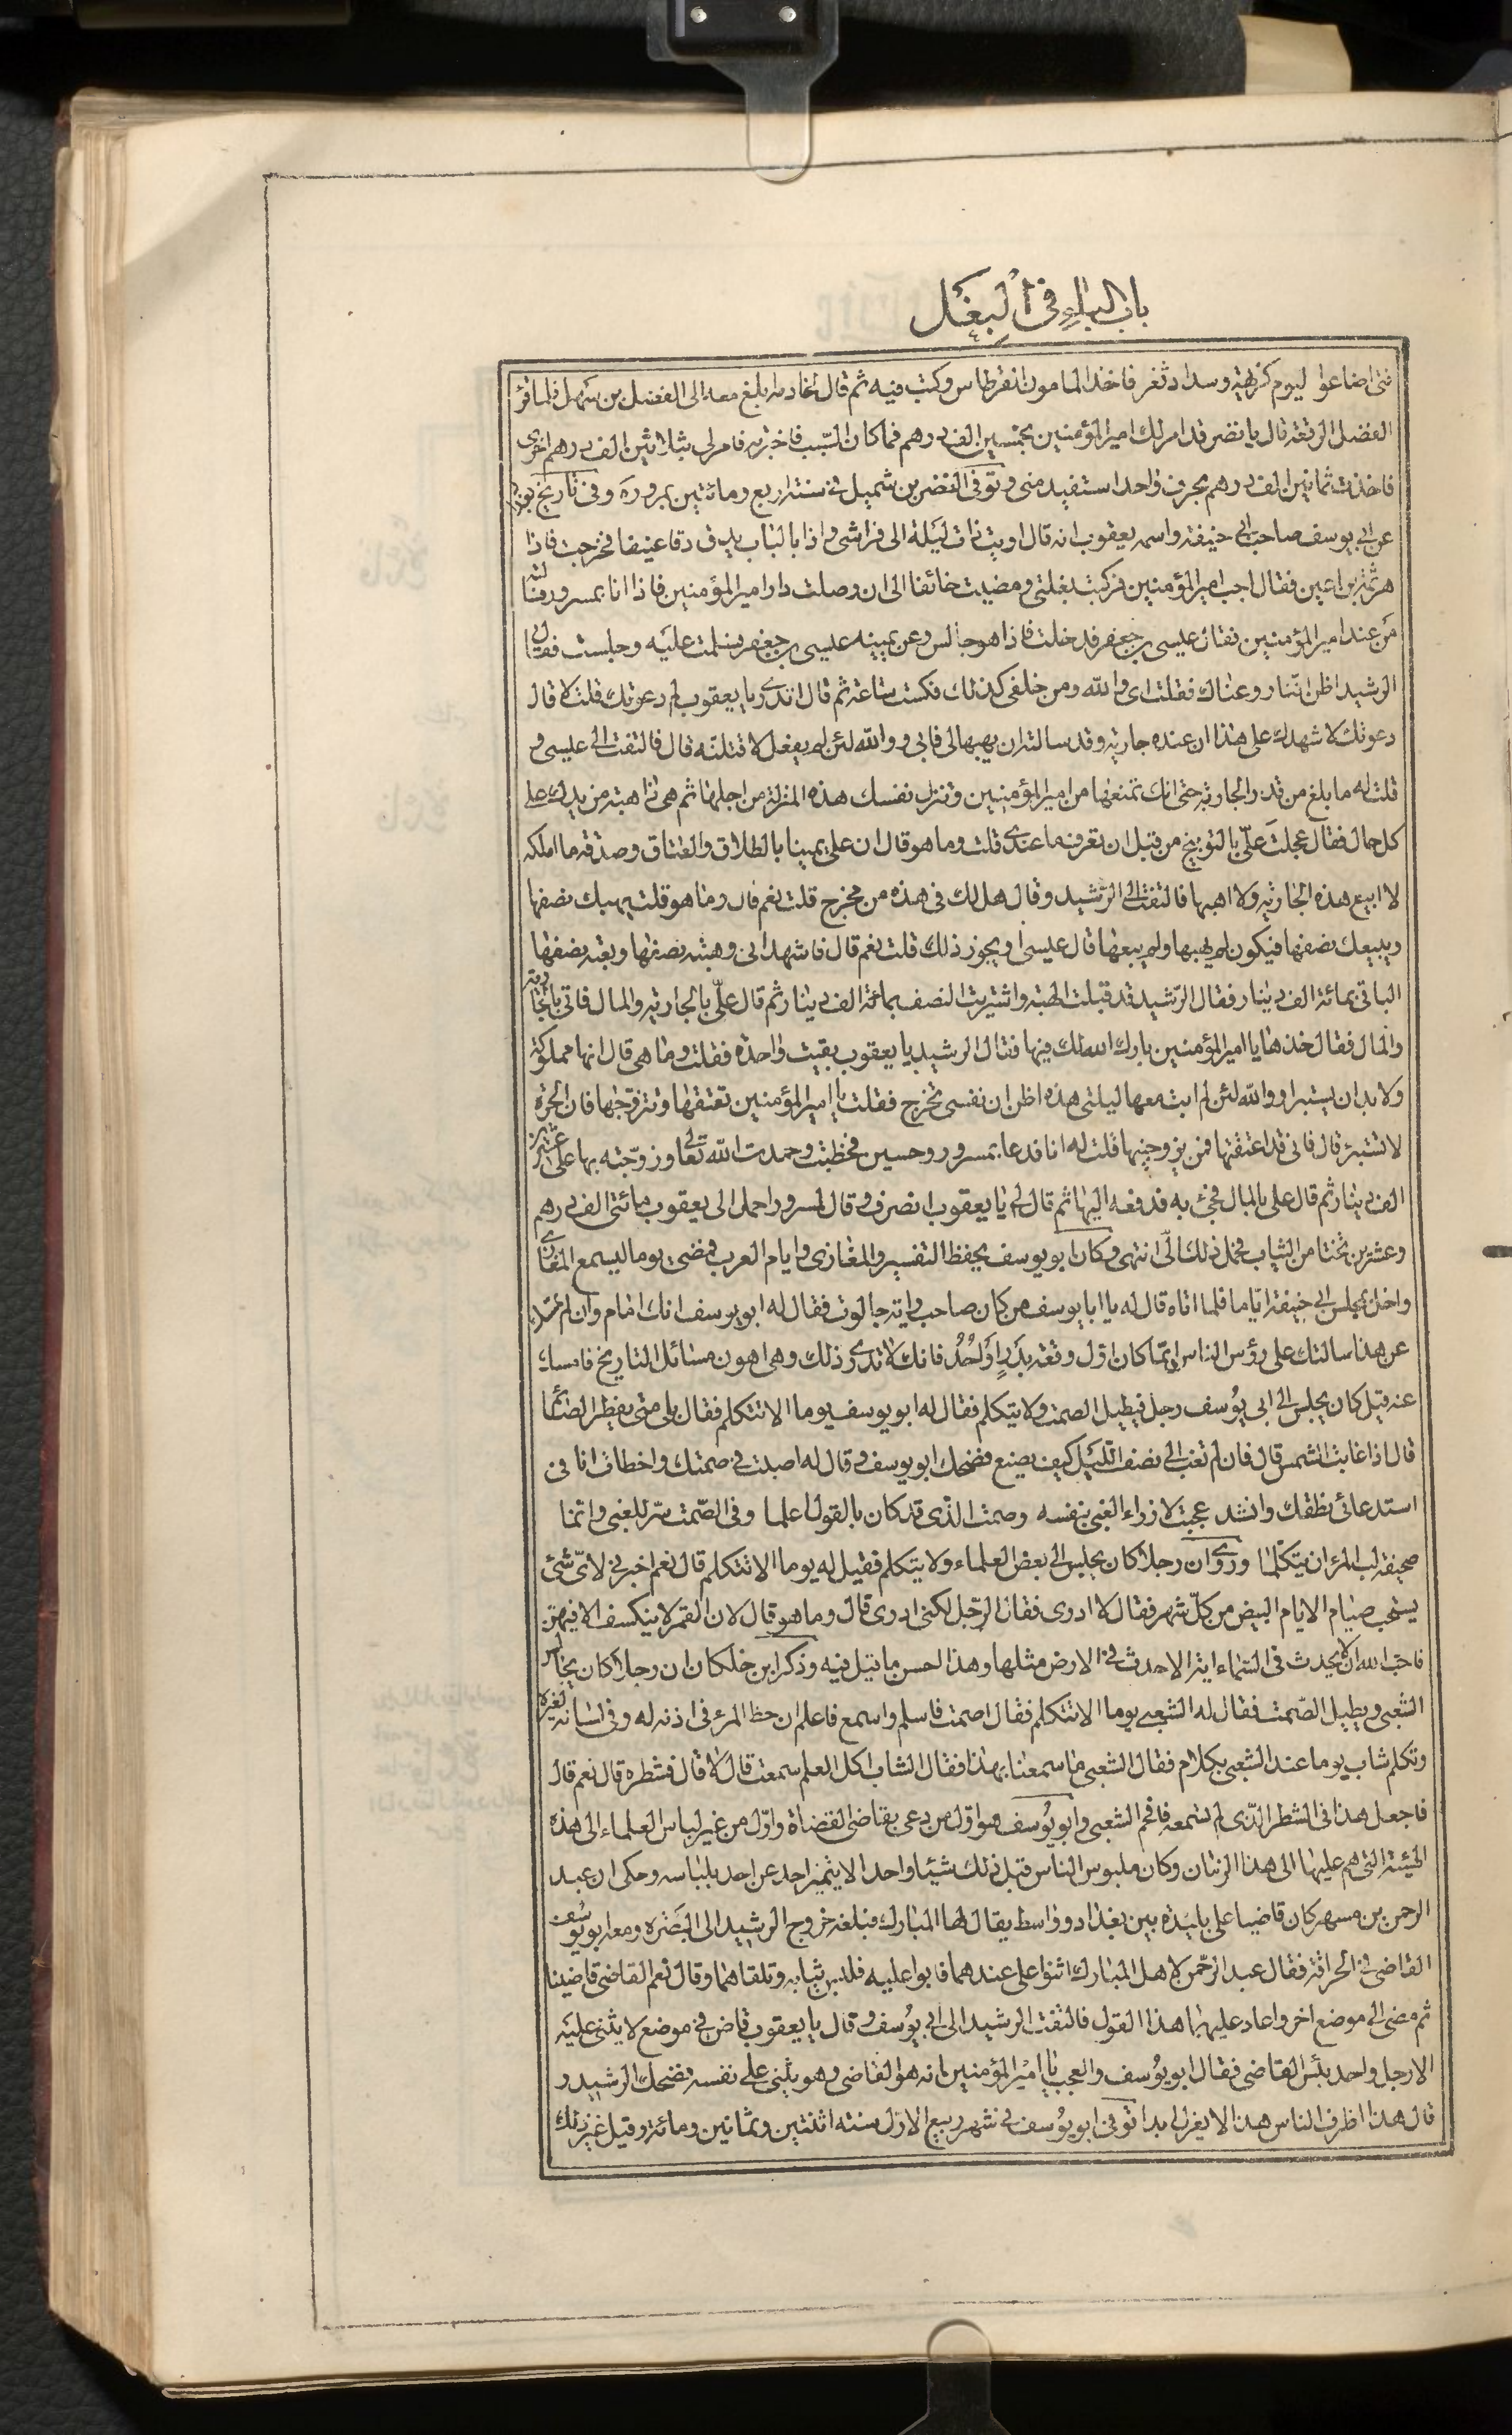 باب الباء في البغل
فتى اضاعوا ليوم كريهة وسداد ثغر فاخذ المامون القرطاس وكتب فيه ثم قال لخادمه ابلغ معه الى الفضل بن سهل فلما قرأ
الفضل الرقعة قال يا نضر قد امر لك امير المؤمنين بخمسين الف درهم فما كان السبب فاخبرته فامر لي بثلاثين الف درهم اخرى
فاخذت ثمانين الف درهم بحرف واحد استفيد مني وتوفي النضر بن شميل في سنة اربع ومائتين بمرو وفي تاريخ بغداد
عن ابي يوسف صاحب ابي حنيفة واسمه يعقوب انه قال اويت ذات ليلة الى فراشي واذا بالباب يدق دقا عنيفا فخرجت فاذا
هرثمة بن اعين فقال اجب امير المؤمنين فركبت بغلتي ومضيت خائفا الى ان وصلت دار امير المؤمنين فاذا انا بمسرور فسالته
من عند امير المؤمنين فقال عيسى بن جعفر فدخلت فاذا هو جالس وعن يمينه عيسى بن جعفر فسلمت عليه وجلست فقال لي
الرشيد اظن اننا روعناك فقلت اي والله ومن خلفي كذلك فسكت ساعة ثم قال اتدري يا يعقوب لم دعوتك قلت لا قال
دعوتك لاشهدك على هذا ان عنده جارية وقد سالته ان يهبها لي فابى ووالله لئن لم يفعل لاقتلنه قال فالتفت الى عيسى و
قلت له ما بلغ من قدر الجارية حتى انك تمنعها من امير المؤمنين وتنزل نفسك هذه المنزلة من اجلها ثم هي ذاهبة من يدك على
كل حال فقال عجلت علي بالتوبيخ من قبل ان تعرف ما عندي قلت وما هو قال ان علي يمينا بالطلاق والعتاق وصدقة ما املكه
لا ابيع هذه الجارية ولا اهبها فالتفت الى الرشيد وقال هل لك في هذه من مخرج قلت نعم قال وما هو قلت يهبك نصفها
ويبيعك نصفها فيكون لم يهبها ولم يبعها قال عيسى او يجوز ذلك قلت نعم قال فاشهد اني وهبته نصفها وبعته نصفها
الباقي بمائة الف دينار فقال الرشيد قد قبلت الهبة واشتريت النصف بمائة الف دينار ثم قال علي بالجارية والمال فاتي بالجارية
والمال فقال خذها يا امير المؤمنين بارك الله لك فيها فقال الرشيد يا يعقوب بقيت واحدة فقلت وما هي قال انها مملوكة
ولا بد ان يستبرا ووالله لئن لم ابت معها ليلتي هذه اظن ان نفسي تخرج فقلت يا امير المؤمنين تعتقها وتتزوجها فان الحرة
لا تستبرئ قال فاني قد اعتقتها فمن يزوجنيها قلت له انا فدعا بمسرور وحسين فخطبت وحمدت الله تعالى وزوجته بها على عشرين
الف دينار ثم قال علي بالمال فجئ به فدفعه اليها ثم قال لي يا يعقوب انصرف وقال لمسرور احمل الى يعقوب مائتي الف درهم
وعشرين تختا من الثياب فحمل ذلك الي انتهى وكان ابو يوسف يحفظ التفسير والمغازي وايام العرب فمضى يوما ليسمع المغازي
واخل بمجلس ابي حنيفة اياما فلما اتاه قال له يا ابا يوسف من كان صاحب راية جالوت فقال له ابو يوسف انك امام وان لم تمسك
عن هذا سالتك على رؤس الناس ايما كان اول وقعة بدر او احد فانك لا تدري ذلك وهي اهون مسائل التاريخ فامسك
عنه قيل كان يجلس الى ابي يوسف رجل فيطيل الصمت ولا يتكلم فقال له ابو يوسف يوما الا تتكلم فقال بلى متى يفطر الصائم
قال اذا غابت الشمس قال فان لم تغب الى نصف الليل كيف يصنع فضحك ابو يوسف وقال له اصبت في صمتك واخطأت انا في
استدعائي نطقك وانشد عجبت لازراء الغبي بنفسه وصمت الذي قد كان بالقول اعلما وفي الصمت ستر للغبي وانما
صحيفة لب المرء ان يتكلما وروي ان رجلا كان يجلس الى بعض العلماء ولا يتكلم فقيل له يوما الا تتكلم قال نعم اخبرني لاي شئ
يستحب صيام الايام البيض من كل شهر فقال لا ادري فقال الرجل لكني ادري قال وما هو قال لان القمر لا ينكسف الا فيهن
فاحب الله ان لا يحدث في السماء اية الا حدث في الارض مثلها وهذا احسن ما قيل فيه وذكر ابن خلكان ان رجلا كان يجالس
الشعبي ويطيل الصمت فقال له الشعبي يوما الا تتكلم فقال اصمت فاسلم واسمع فاعلم ان حظ المرء في اذنه له وفي لسانه لغيره
وتكلم شاب يوما عند الشعبي بكلام فقال الشعبي ما سمعنا بهذا فقال الشاب اكل العلم سمعت قال لا قال فشطره قال نعم قال
فاجعل هذا في الشطر الذي لم تسمعه فافحم الشعبي وابو يوسف هو اول من دعي بقاضي القضاة واول من غير لباس العلماء الى هذه
الهيئة التي هم عليها الى هذا الزمان وكان ملبوس الناس قبل ذلك شيئا واحدا لا يتميز احد عن احد بلباسه وحكى ان عبد
الرحمن بن مسهر كان قاضيا على بليدة بين بغداد وواسط يقال لها المبارك فبلغه خروج الرشيد الى البصرة ومعه ابو يوسف
القاضي في الحراقة فقال عبد الرحمن لاهل المبارك اثنوا علي عندهما فابوا عليه فلبس ثيابه وتلقاهما وقال نعم القاضي قاضينا
ثم مضى الى موضع اخر واعاد عليهما هذا القول فالتفت الرشيد الى ابي يوسف وقال يا يعقوب قاض في موضع لا يثني عليه
الا رجل واحد بئس القاضي فقال ابو يوسف والعجب يا امير المؤمنين انه هو القاضي وهو يثني على نفسه فضحك الرشيد و
قال هذا اظرف الناس هذا لا يعزل ابدا توفي ابو يوسف في شهر ربيع الاول سنة اثنتين وثمانين ومائة وقيل غير ذلك